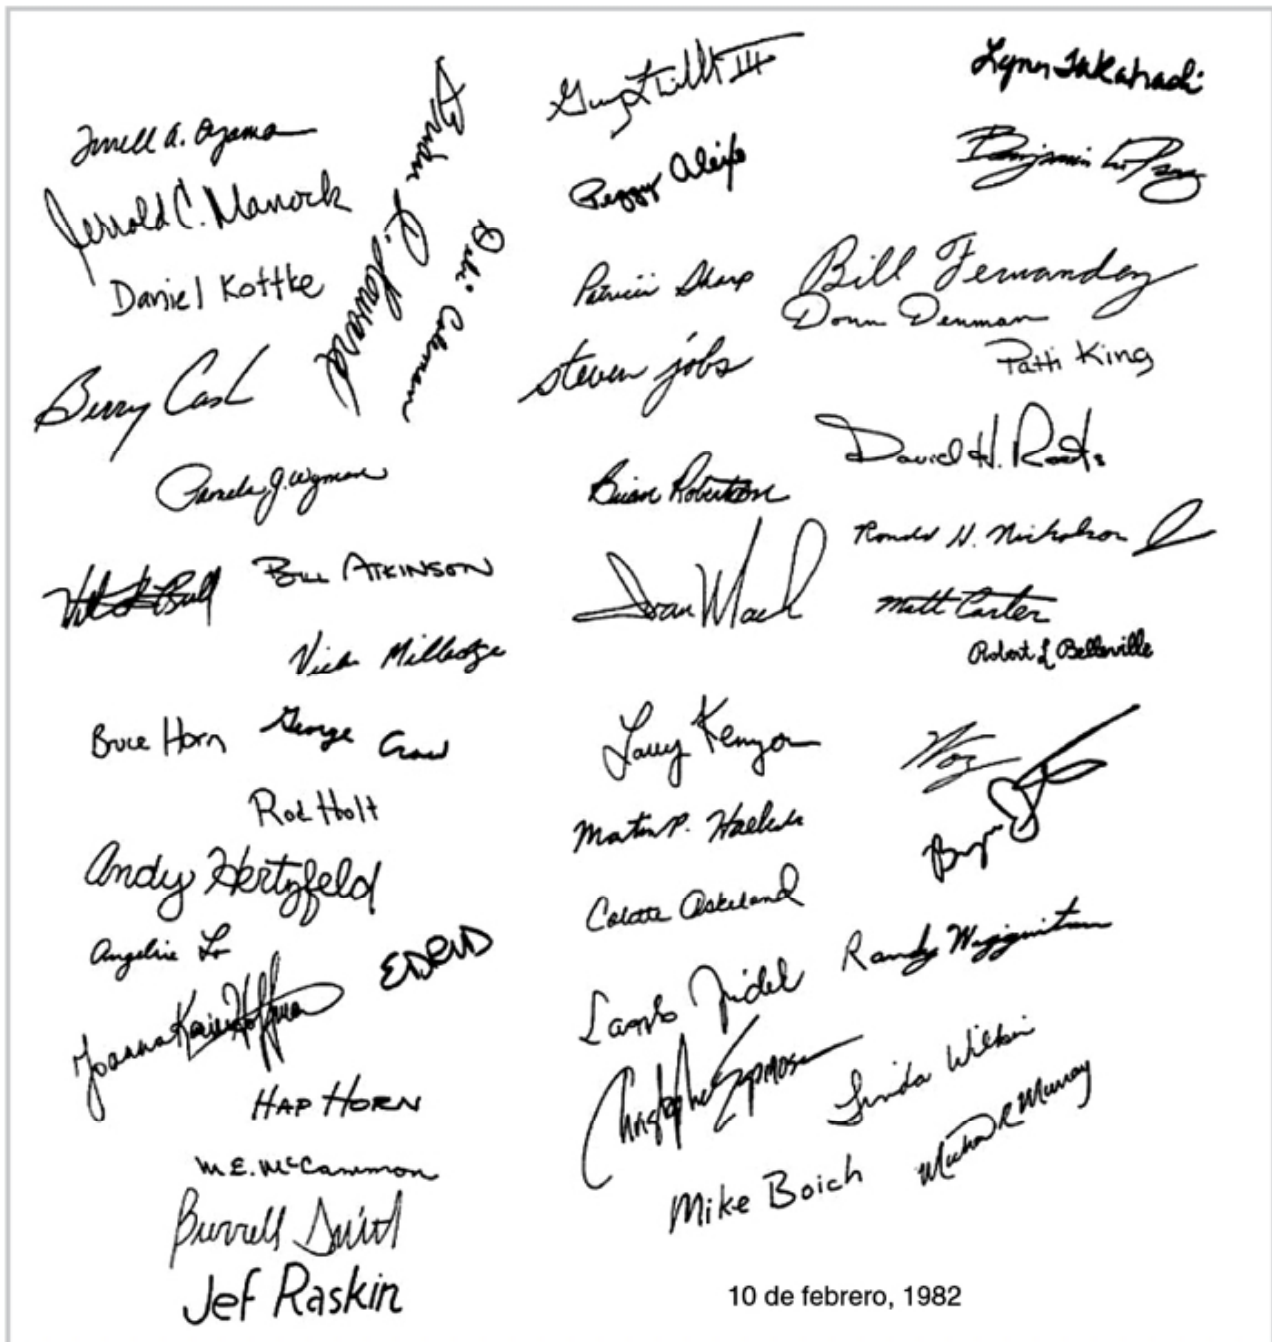 Jerrold C. Manock
Daniel Kottke
Berry Cash
Pamela J. Wyman
Bill Atkinson
Vicki Milledge
Bruce Horn
George Crow
Rod Holt
Andy Hertzfeld
Angeline Lo
EDRUD
Joanna Karin Hoffman
HAP HORN
M.E. McCammon
Burrell Smith
Jef Raskin
Brian R. Howard
Debi Coleman
Peggy Alexio
Patricia Sharp
steven jobs
Brian Robertson
Ivan Mach
Larry Kenyon
Martin P. Haeberli
Colette Askeland
Laszlo Zidek
Christopher Espinosa
Mike Boich
Lynn Takahashi
Benjamin L. Pang
Bill Fernandez
Donn Denman
Patti King
David H. Roots
Ronald H. Nicholson Jr
Matt Carter
Robert L Belleville
Woz
Randy Wigginton
Linda Wilkin
Michael R Murray
10 de febrero, 1982